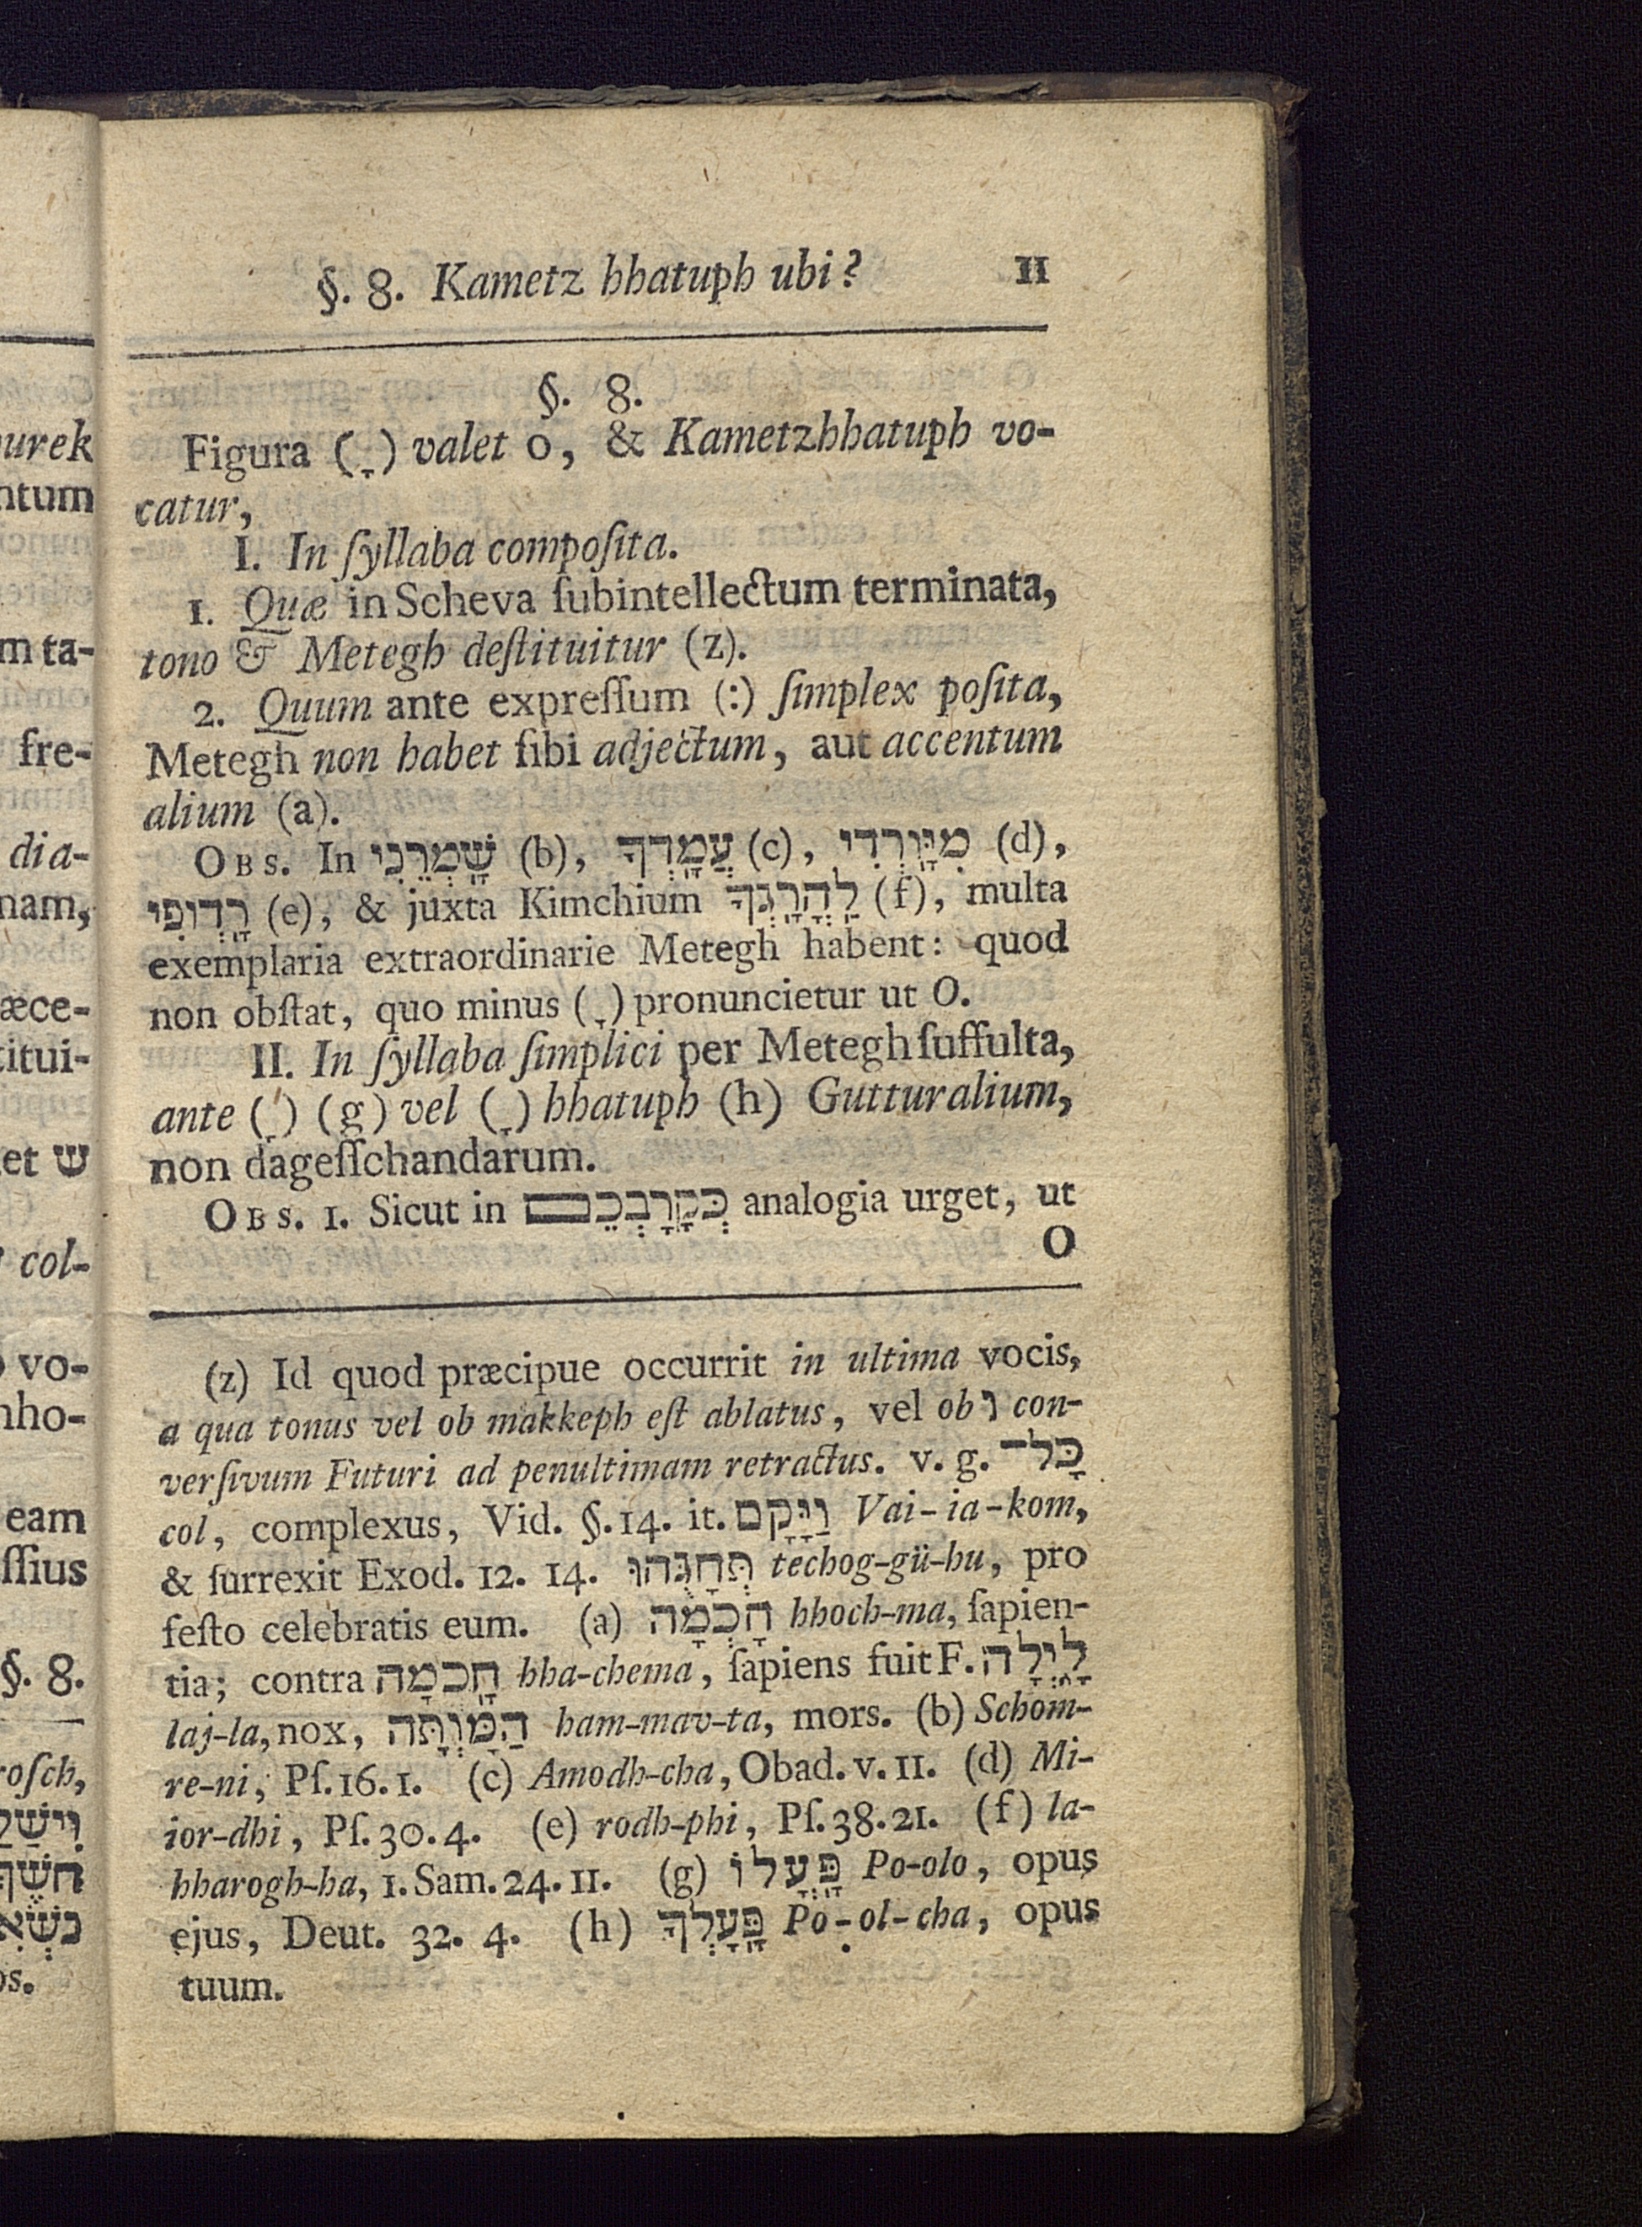 §. 8. Kametz hhatuph ubi? 11
§. 8.
Figura ( ָ ) valet o, & Kametzhhatuph vo-
catur,
I. In ſyllaba compoſita.
1. Quæ in Scheva ſubintellectum terminata,
tono & Metegh deſtituitur (z).
2. Quum ante expreſſum (:) ſimplex poſita,
Metegh non habet ſibi adjectum, aut accentum
alium (a).
OBS. In שָֽׁמְרֵנִי (b), עֲמָֽדְךָ (c), מִיָּֽורְדִי (d),
רָֽדְופִי (e), & juxta Kimchium לַֽהֲרָֽגְךָ (f), multa
exemplaria extraordinarie Metegh habent: quod
non obſtat, quo minus ( ָ ) pronuncietur ut O.
II. In ſyllaba ſimplici per Metegh ſuffulta,
ante ( ֳ ) (g) vel ( ָ ) hhatuph (h) Gutturalium,
non dageſſchandarum.
OBS. 1. Sicut in כְּקָֽרָבְכֶם analogia urget, ut
O
(z) Id quod præcipue occurrit in ultima vocis,
a qua tonus vel ob makkeph eſt ablatus, vel ob ו con-
verſivum Futuri ad penultimam retractus. v. g. כָּל־
col, complexus, Vid. §. 14. it. וַיָּקָם Vai-ia-kom,
& ſurrexit Exod. 12. 14. תְּחָגֻּהוּ techog-gü-hu, pro
feſto celebratis eum. (a) חָכְמָה hhoch-ma, ſapien-
tia; contra חָֽכמָה hha-chema, ſapiens fuit F. לָיְלָה
laj-la, nox, הַמָּוְתָּה ham-mav-ta, mors. (b) Schom-
re-ni, Pſ. 16. 1. (c) Amodh-cha, Obad. v. 11. (d) Mi-
ior-dhi, Pſ. 30. 4. (e) rodh-phi, Pſ. 38. 21. (f) la-
hharogh-ha, 1. Sam. 24. 11. (g) פָּֽעֳלוֹ Po-olo, opus
ejus, Deut. 32. 4. (h) פָּֽעָלְךָ Po-ol-cha, opus
tuum.